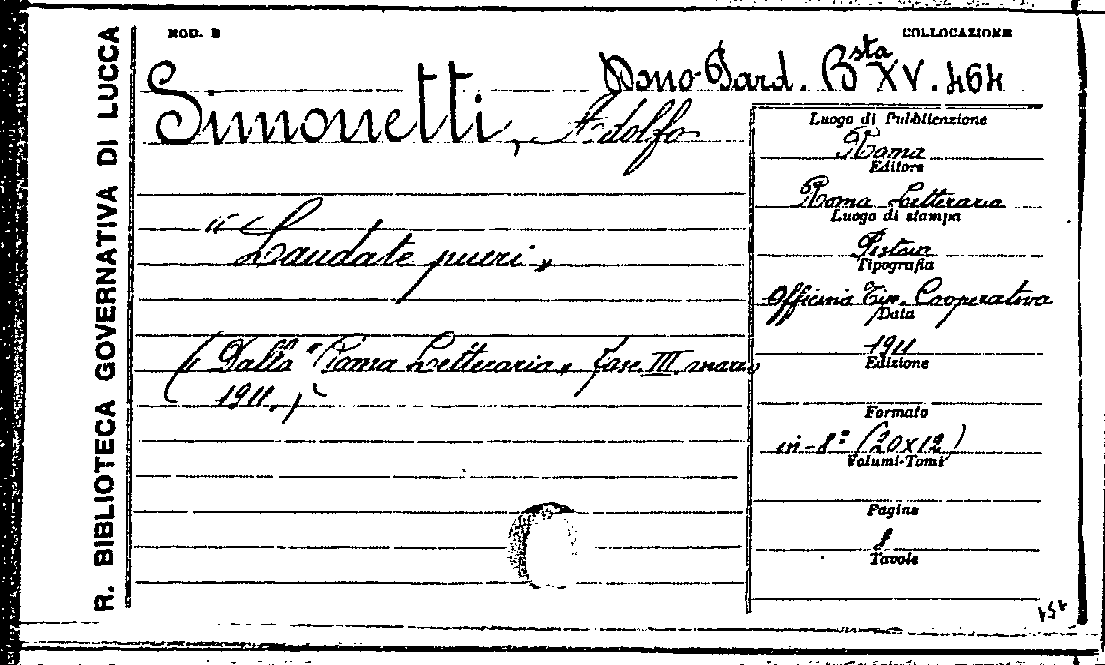 R. BIBLIOTECA GOVERNATIVA DI LUCCA
MOD. B
COLLOCAZIONE
Dono-Pard. Bsta XV. 464
Simonetti, Adolfo
"Laudate pueri"
(Dalla "Roma Letteraria" fasc. III marzo
1911.)
Luogo di Pubblicazione
Roma
Editore
Roma Letteraria
Luogo di stampa
Pistoia
Tipografia
Officina Tip. Cooperativa
Data
1911
Edizione
Formato
in-8° (20x12)
Volumi-Tomi
Pagine
8
Tavole